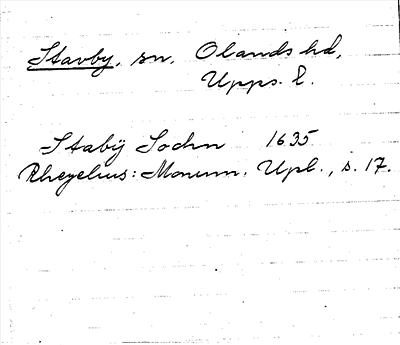 Stavby, sn, Olands hd,
Upps. l.
Stabÿ Sochn 1635
Rhezelius: Monum. Upl., s. 17.